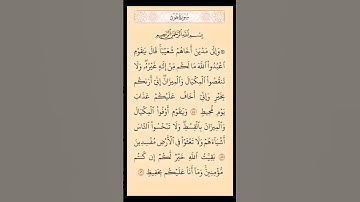 سورة هود
بسم الله الرحمن الرحيم
۞ وَإِلَىٰ مَدْيَنَ أَخَاهُمْ شُعَيْبًا ۚ قَالَ يَٰقَوْمِ
ٱعْبُدُوا۟ ٱللَّهَ مَا لَكُم مِّنْ إِلَٰهٍ غَيْرُهُۥ ۖ وَلَا
تَنقُصُوا۟ ٱلْمِكْيَالَ وَٱلْمِيزَانَ ۚ إِنِّىٓ أَرَىٰكُم
بِخَيْرٍ وَإِنِّىٓ أَخَافُ عَلَيْكُمْ عَذَابَ
يَوْمٍ مُّحِيطٍ ۝ وَيَٰقَوْمِ أَوْفُوا۟ ٱلْمِكْيَالَ
وَٱلْمِيزَانَ بِٱلْقِسْطِ ۖ وَلَا تَبْخَسُوا۟ ٱلنَّاسَ
أَشْيَآءَهُمْ وَلَا تَعْثَوْا۟ فِى ٱلْأَرْضِ مُفْسِدِينَ
۝ بَقِيَّتُ ٱللَّهِ خَيْرٌ لَّكُمْ إِن كُنتُم
مُّؤْمِنِينَ ۚ وَمَآ أَنَا۠ عَلَيْكُم بِحَفِيظٍ ۝